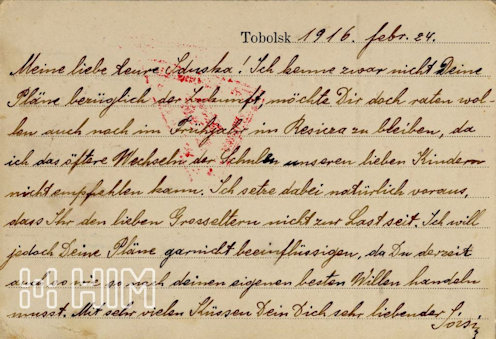 Tobolsk 1916. febr. 24.
Meine liebe teure Ich kenne zwar nicht Deine
Pläne bezüglich der Zukunft, möchte Dir doch raten wol-
len auch noch im Frühjahr in Resicza zu bleiben, da
ich das öftere Wechseln der Schulen unseren lieben Kindern
nicht empfehlen kann. Ich setze dabei natürlich voraus,
dass Ihr den lieben Grosseltern nicht zur Last seit. Ich will
jedoch Deine Pläne garnicht beeinflüssigen, da Du derzeit
auch so wie so nach deinen eigenen besten Willen handeln
musst. Mit sehr vielen Küssen Dein Dich sehr liebender
HIM